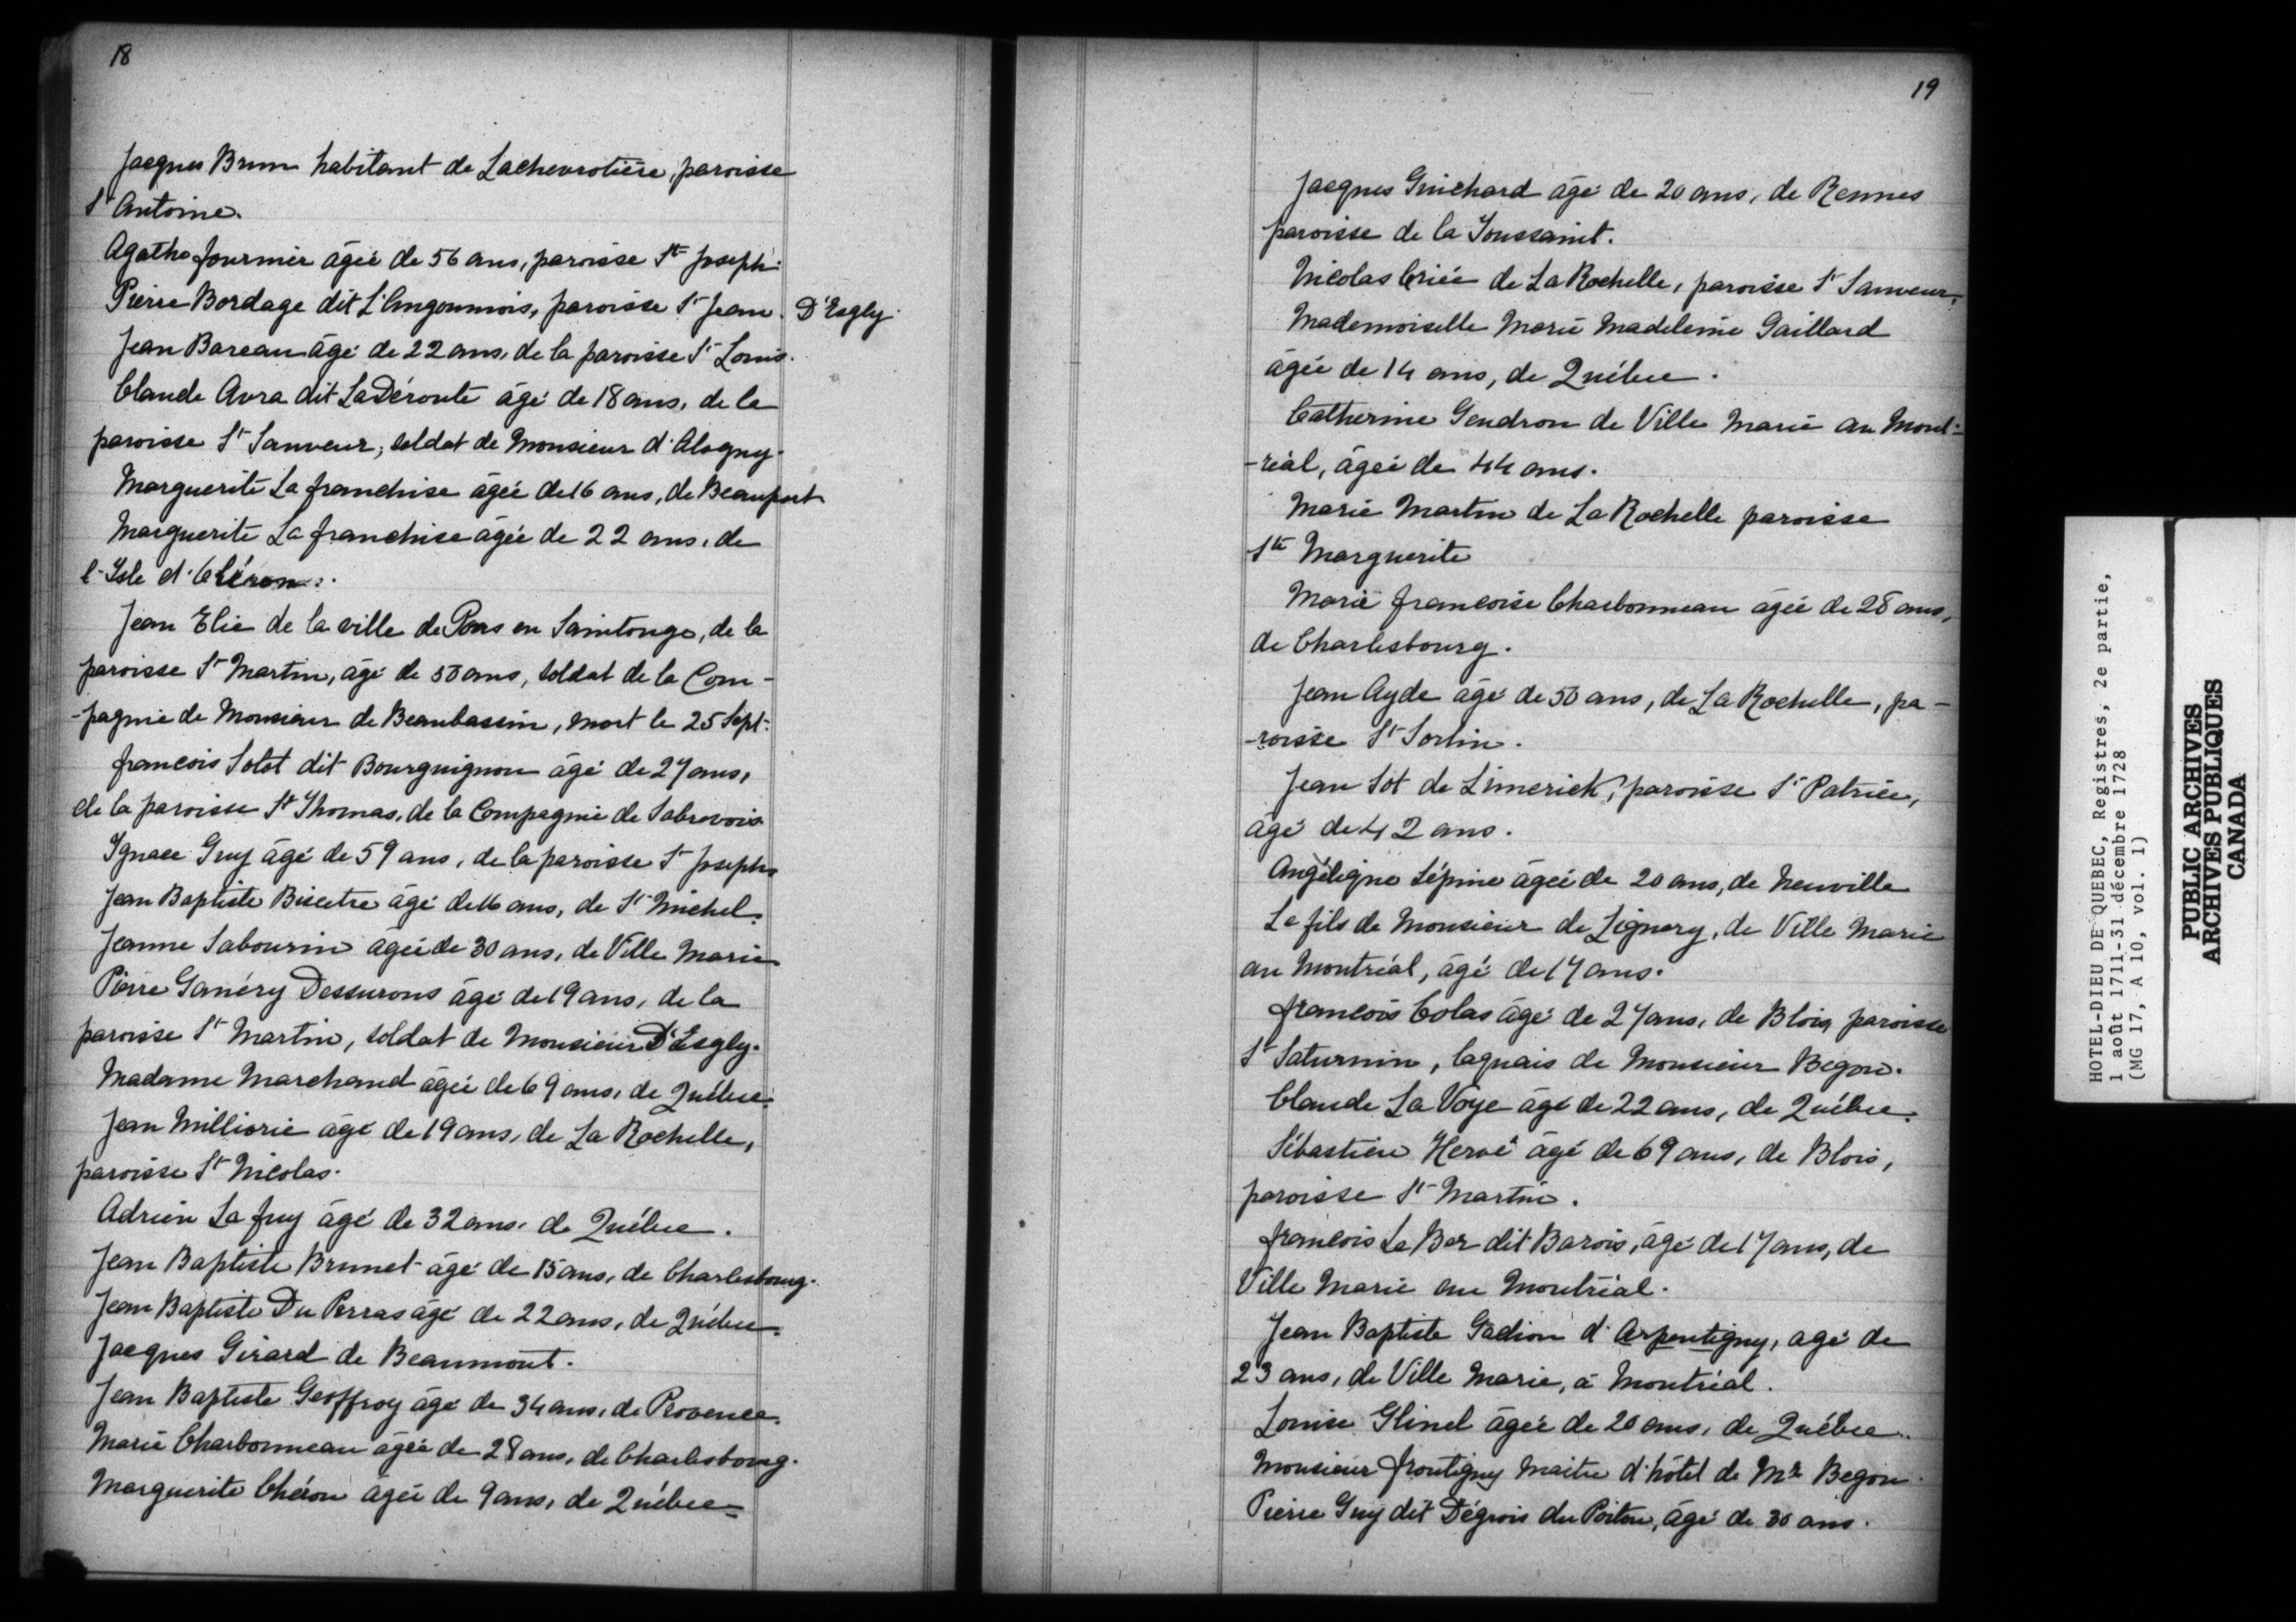 18
Jacques Brun habitant de Lachevrotière, paroisse
St Antoine.
Agathe fournier âgée de 56 ans, paroisse St Joseph.
Pierre Bordage dit L'Angoumois, paroisse St Jean. D'Esgly.
Jean Bareau âgé de 22 ans, de la paroisse St Louis.
Claude Avra dit La Déroute âgé de 18 ans, de la
paroisse St Sauveur, soldat de Monsieur d'Alogny.
Marguerite La franchise âgée de 16 ans, de Beauport
Marguerite La franchise âgée de 22 ans, de
l'Isle d'Oléron.
Jean Elie de la ville de Pons en Saintonge, de la
paroisse St Martin, âgé de 50 ans, soldat de la Com-
-pagnie de Monsieur de Beaubassin, mort le 25 Sept.
francois Solot dit Bourguignon âgé de 27 ans,
de la paroisse St Thomas, de la Compagnie de Sabrevois.
Ignace Guy âgé de 59 ans, de la paroisse St Joseph
Jean Baptiste Bisetre âgé de 16 ans, de St Michel.
Jeanne Sabourin âgée de 30 ans, de Ville Marie.
Pierre Ganéry Dessurons âgé de 19 ans, de la
paroisse St Martin, soldat de Monsieur D'Esgly.
Madame Marchand âgée de 69 ans, de Québec.
Jean Milliorie âgé de 19 ans, de La Rochelle,
paroisse St Nicolas.
Adrien La fuy âgé de 32 ans, de Québec.
Jean Baptiste Brunet âgé de 15 ans, de Charlesbourg.
Jean Baptiste Du Perras âgé de 22 ans, de Québec.
Jacques Girard de Beaumont.
Jean Baptiste Geoffroy âgé de 34 ans, de Provence.
Marie Charbonneau âgée de 28 ans, de Charlesbourg.
Marguerite Chéron âgée de 9 ans, de Québec.
19
Jacques Guichard âgé de 20 ans, de Rennes
paroisse de la Toussaint.
Nicolas Criée de La Rochelle, paroisse St Sauveur.
Mademoiselle Marie Madeleine Gaillard
âgée de 14 ans, de Québec.
Catherine Gendron de Ville Marie au Mont-
-réal, âgée de 44 ans.
Marie Martin de La Rochelle paroisse
Ste Marguerite
Marie francoise Charbonneau âgée de 28 ans,
de Charlesbourg.
Jean Ayde âgé de 50 ans, de La Rochelle, pa-
-roisse St Sorlin.
Jean Sot de Limerick, paroisse St Patrice,
âgé de 42 ans.
Angélique Lépine âgée de 20 ans, de Neuville
Le fils de Monsieur de Lignery, de Ville Marie
au Montréal, âgé de 17 ans.
francois Colas âgé de 27 ans, de Blois, paroisse
St Saturnin, laquais de Monsieur Begon.
Claude La Voye âgé de 22 ans, de Québec.
Sébastien Hervé âgé de 69 ans, de Blois,
paroisse St Martin.
francois Le Ber dit Barois, âgé de 17 ans, de
Ville Marie au Montréal.
Jean Baptiste Gadion d'Arpentigny, agé de
23 ans, de Ville Marie, à Montréal.
Louise Glinel âgée de 20 ans, de Québec.
Monsieur frontigny Maitre d'hôtel de Mr Begon.
Pierre Guy dit Dégrois du Poitou, âgé de 30 ans.
HOTEL-DIEU DE QUEBEC, Registres, 2e partie,
1 août 1711-31 décembre 1728
(MG 17, A 10, vol. 1)
PUBLIC ARCHIVES
ARCHIVES PUBLIQUES
CANADA